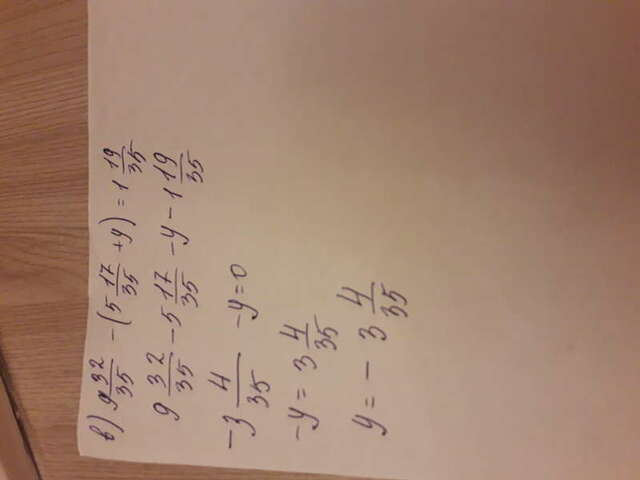 в) 9 32/35 - (5 17/35 + y) = 1 19/35
9 32/35 - 5 17/35 - y - 1 19/35
-3 4/35 - y = 0
-y = 3 4/35
y = - 3 4/35